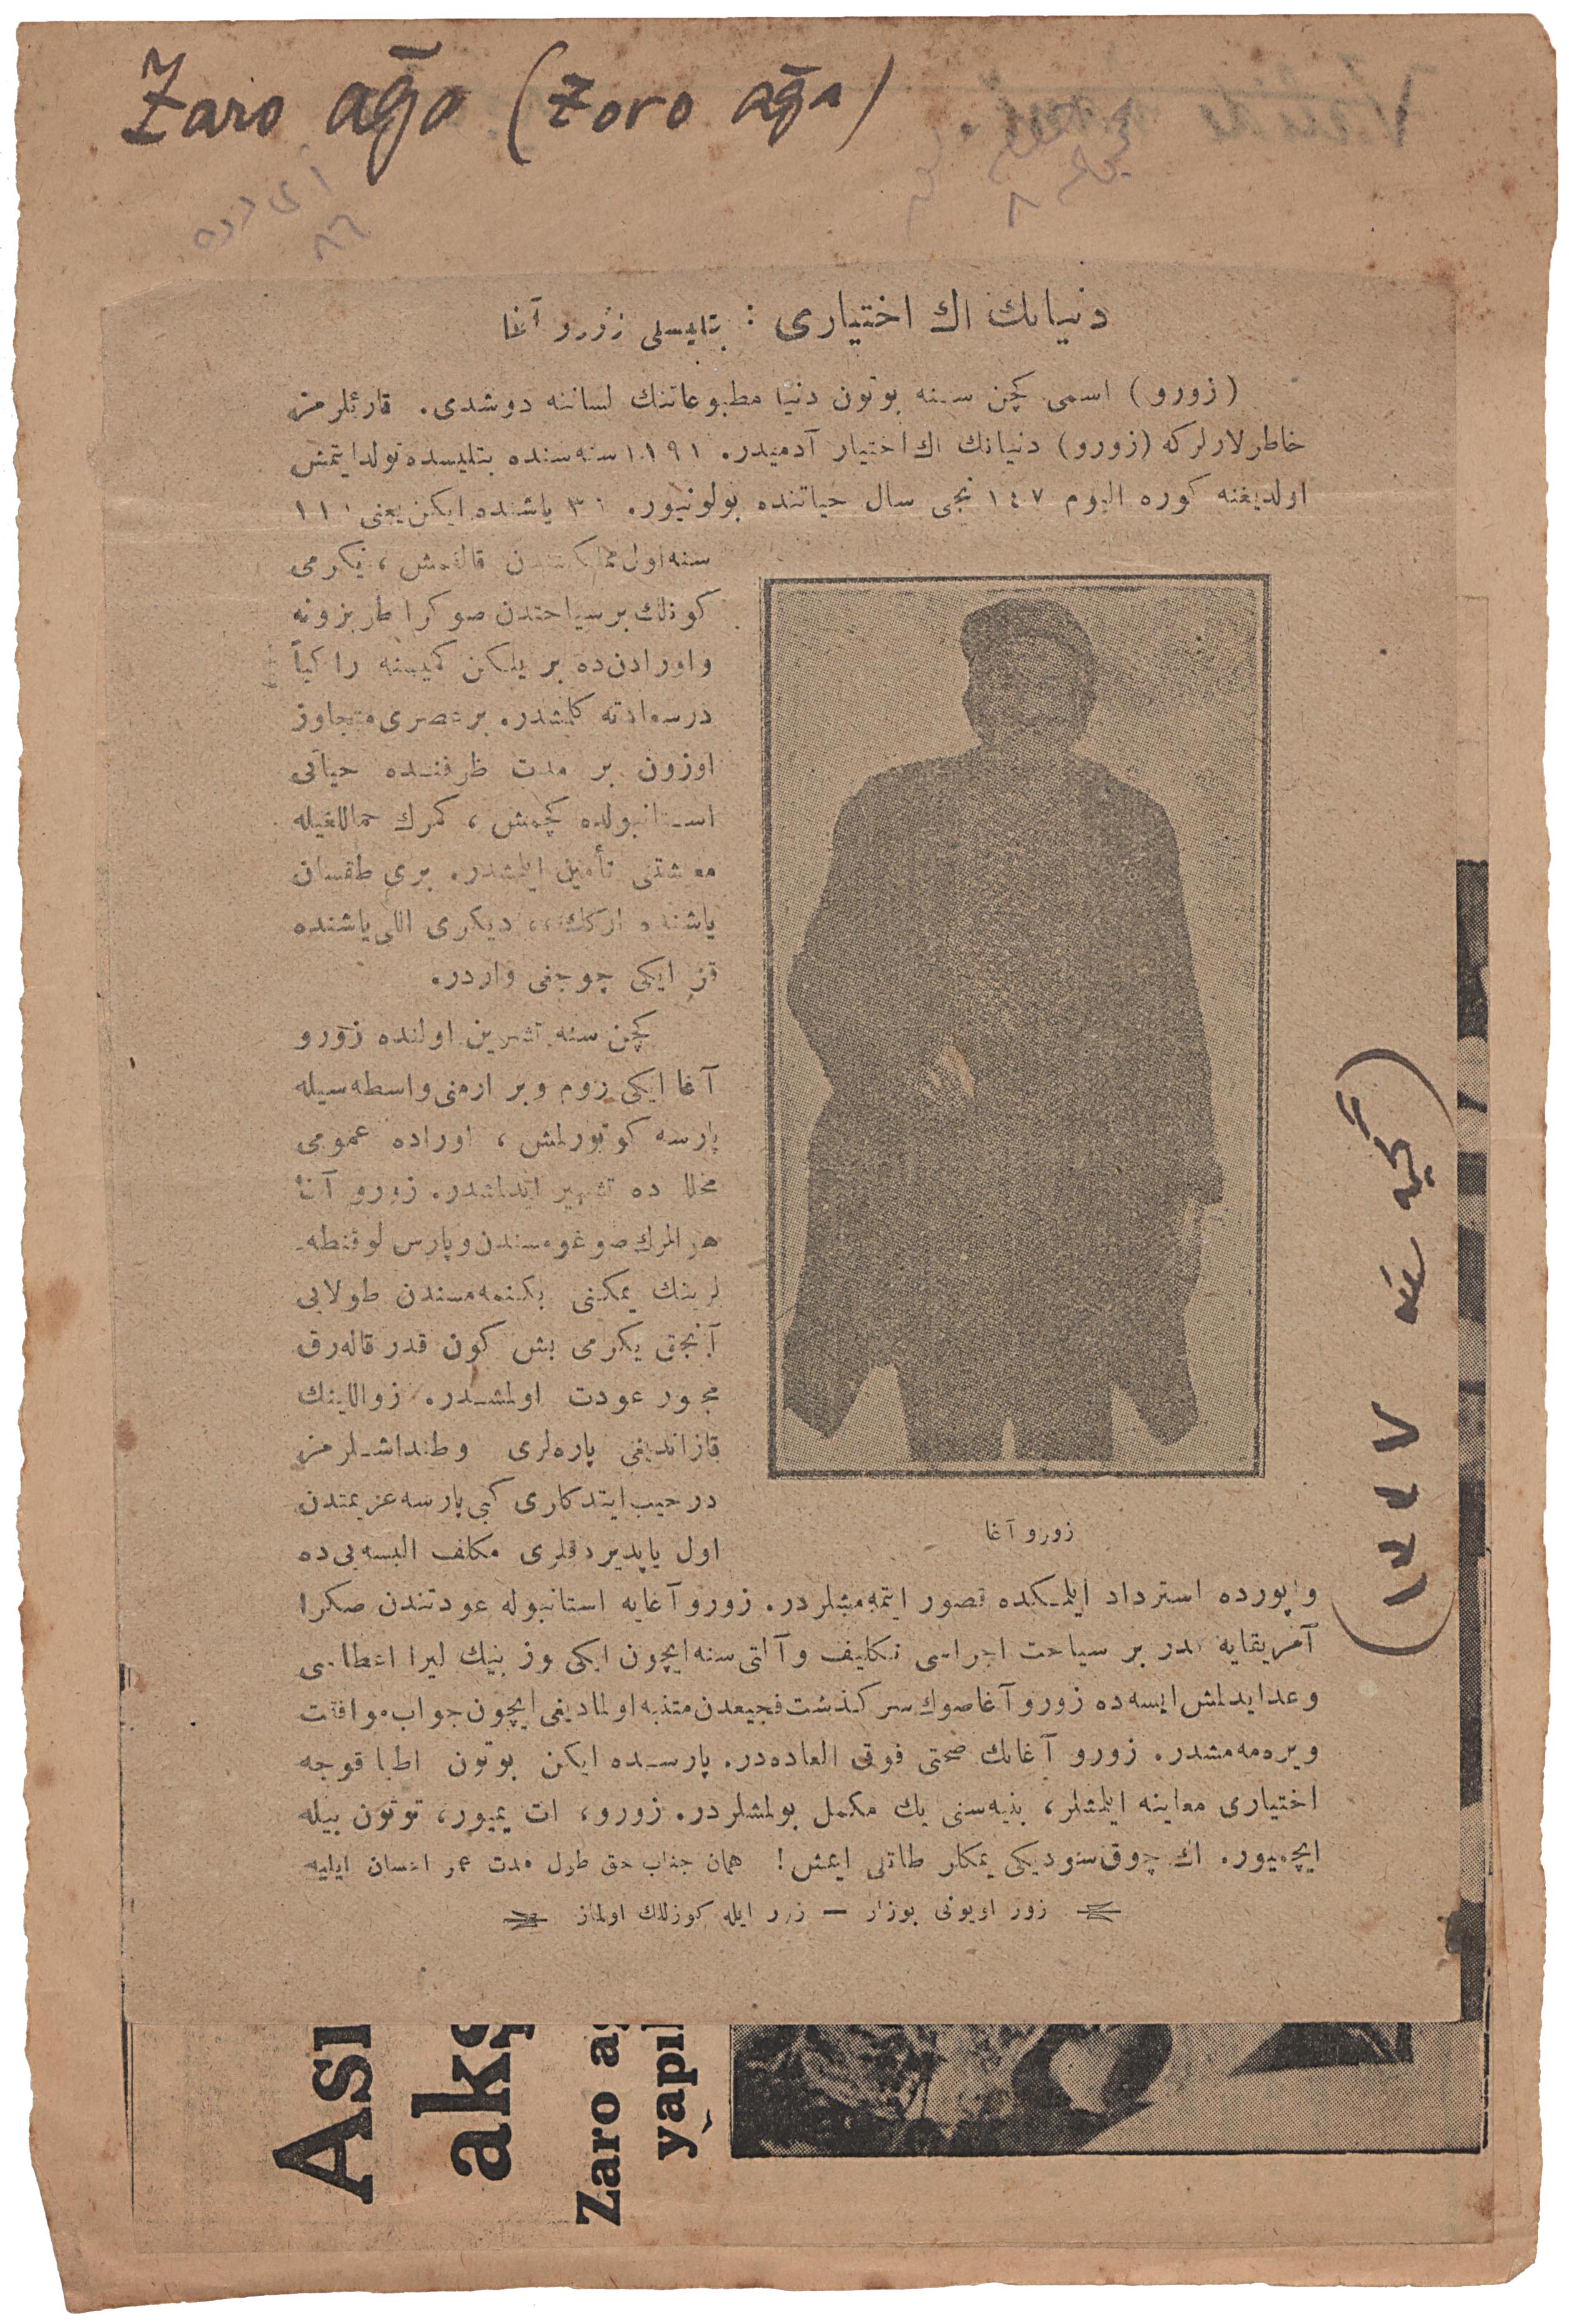 Zaro ağa (Zoro ağa)
آی دده
٨٦
٨
دنیانك اك اختیاری : بتلیسلی زورو آغا
(زورو) اسمی كچن سنه بوتون دنیا مطبوعاتنك لساننه دوشدی. قارئلرمز
خاطرلارلركه (زورو) دنیانك اك اختیار آدمیدر. ١١٩١ سنه‌سنده بتلیسده تولد ایتمش
اولدیغنه كوره الیوم ١٤٧ نجی سال حیاتنده بولونیور. ٣٠ یاشنده ایكن یعنی ١١٠
سنه اول مملكتندن قالقمش ، یكرمی
كونلك بر سیاحتدن صوكرا طربزونه
و اورادن‌ده بر یلكن كمیسنه راكباً
درسعادته كلمشدر. بر عصری متجاوز
اوزون بر مدت ظرفنده حیاتی
استانبولده كچمش ، كمرك حماللغیله
معیشتنی تأمین ایلمشدر. بری طقسان
یاشنده اركك ، دیكری اللی یاشنده
قز ایكی چوجغی واردر.
كچن سنه تشرین اولنده زورو
آغا ایكی روم و بر ارمنی واسطه‌سیله
پارسه كوتورلمش ، اوراده عمومی
محللرده تشهیر ایدلمشدر. زورو آغا
هر المرك صوغومسندن و پارس لوقنطه‌ـ
لرینك یمكنی بكنمه‌مسندن طولایی
آنجق یكرمی بش كون قدر قاله‌رق
مجبور عودت اولمشدر. زواللینك
قازاندیغی پاره‌لری وطنداشلرمز
درجیب ایتدكلری كبی پارسه عزیمتدن
اول یاپدیردقلری مكلف البسه‌یی ده
زورو آغا
واپورده استرداد ایلمكده قصور ایتمه‌مشلردر. زورو آغایه استانبوله عودتندن صكرا
آمریقایه قدر بر سیاحت اجراسی تكلیف و آلتی سنه ایچون ایكی یوز بیك لیرا اعطاسی
وعد ایدلمش ایسه‌ده زورو آغا صوك سركذشت فجیعدن متنبه اولمادیغی ایچون جواب موافقت
ویره‌مه‌مشدر. زورو آغانك صحتی فوق العاده‌در. پارسده ایكن بوتون اطبا قوجه
اختیاری معاینه ایلمشلر، بنیه‌سنی پك مكمل بولمشلردر. زورو، ات یمیور، توتون بیله
ایچمیور. اك چوق سودیكی یمكلر طاتلی ایمش! همان جناب حق طول مدت عمر احسان ایلیه
زور اویونی بوزار — زور ایله كوزللك اولماز
(
١٣٤٧)
Ası
akş
Zaro ağ
yapıl